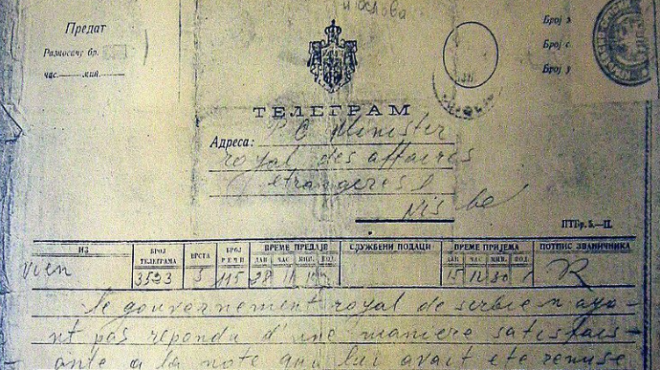 и послова
Предат
Разносачу бр.
час. мин.
Број
Број
Број
ТЕЛЕГРАМ
Адреса:
Minister
royal des affaires
etrangeres
Nis
ПТБр. 5.—II.
ИЗ БРОЈ ТЕЛЕГРАМА ВРСТА БРОЈ РЕЧИ ВРЕМЕ ПРЕДАЈЕ ДАН ЧАС МИН. ПОД. СЛУЖБЕНИ ПОДАЦИ ВРЕМЕ ПРИЈЕМА ДАН. ЧАС МИН. ПОД. ПОТПИС ЗВАНИЧНИКА
Vien 3523 115 28 R
Le gouvernement royal de serbie n aya-
nt pas repondu d'une maniere satisfais-
ante a la note qui lui avait ete remise